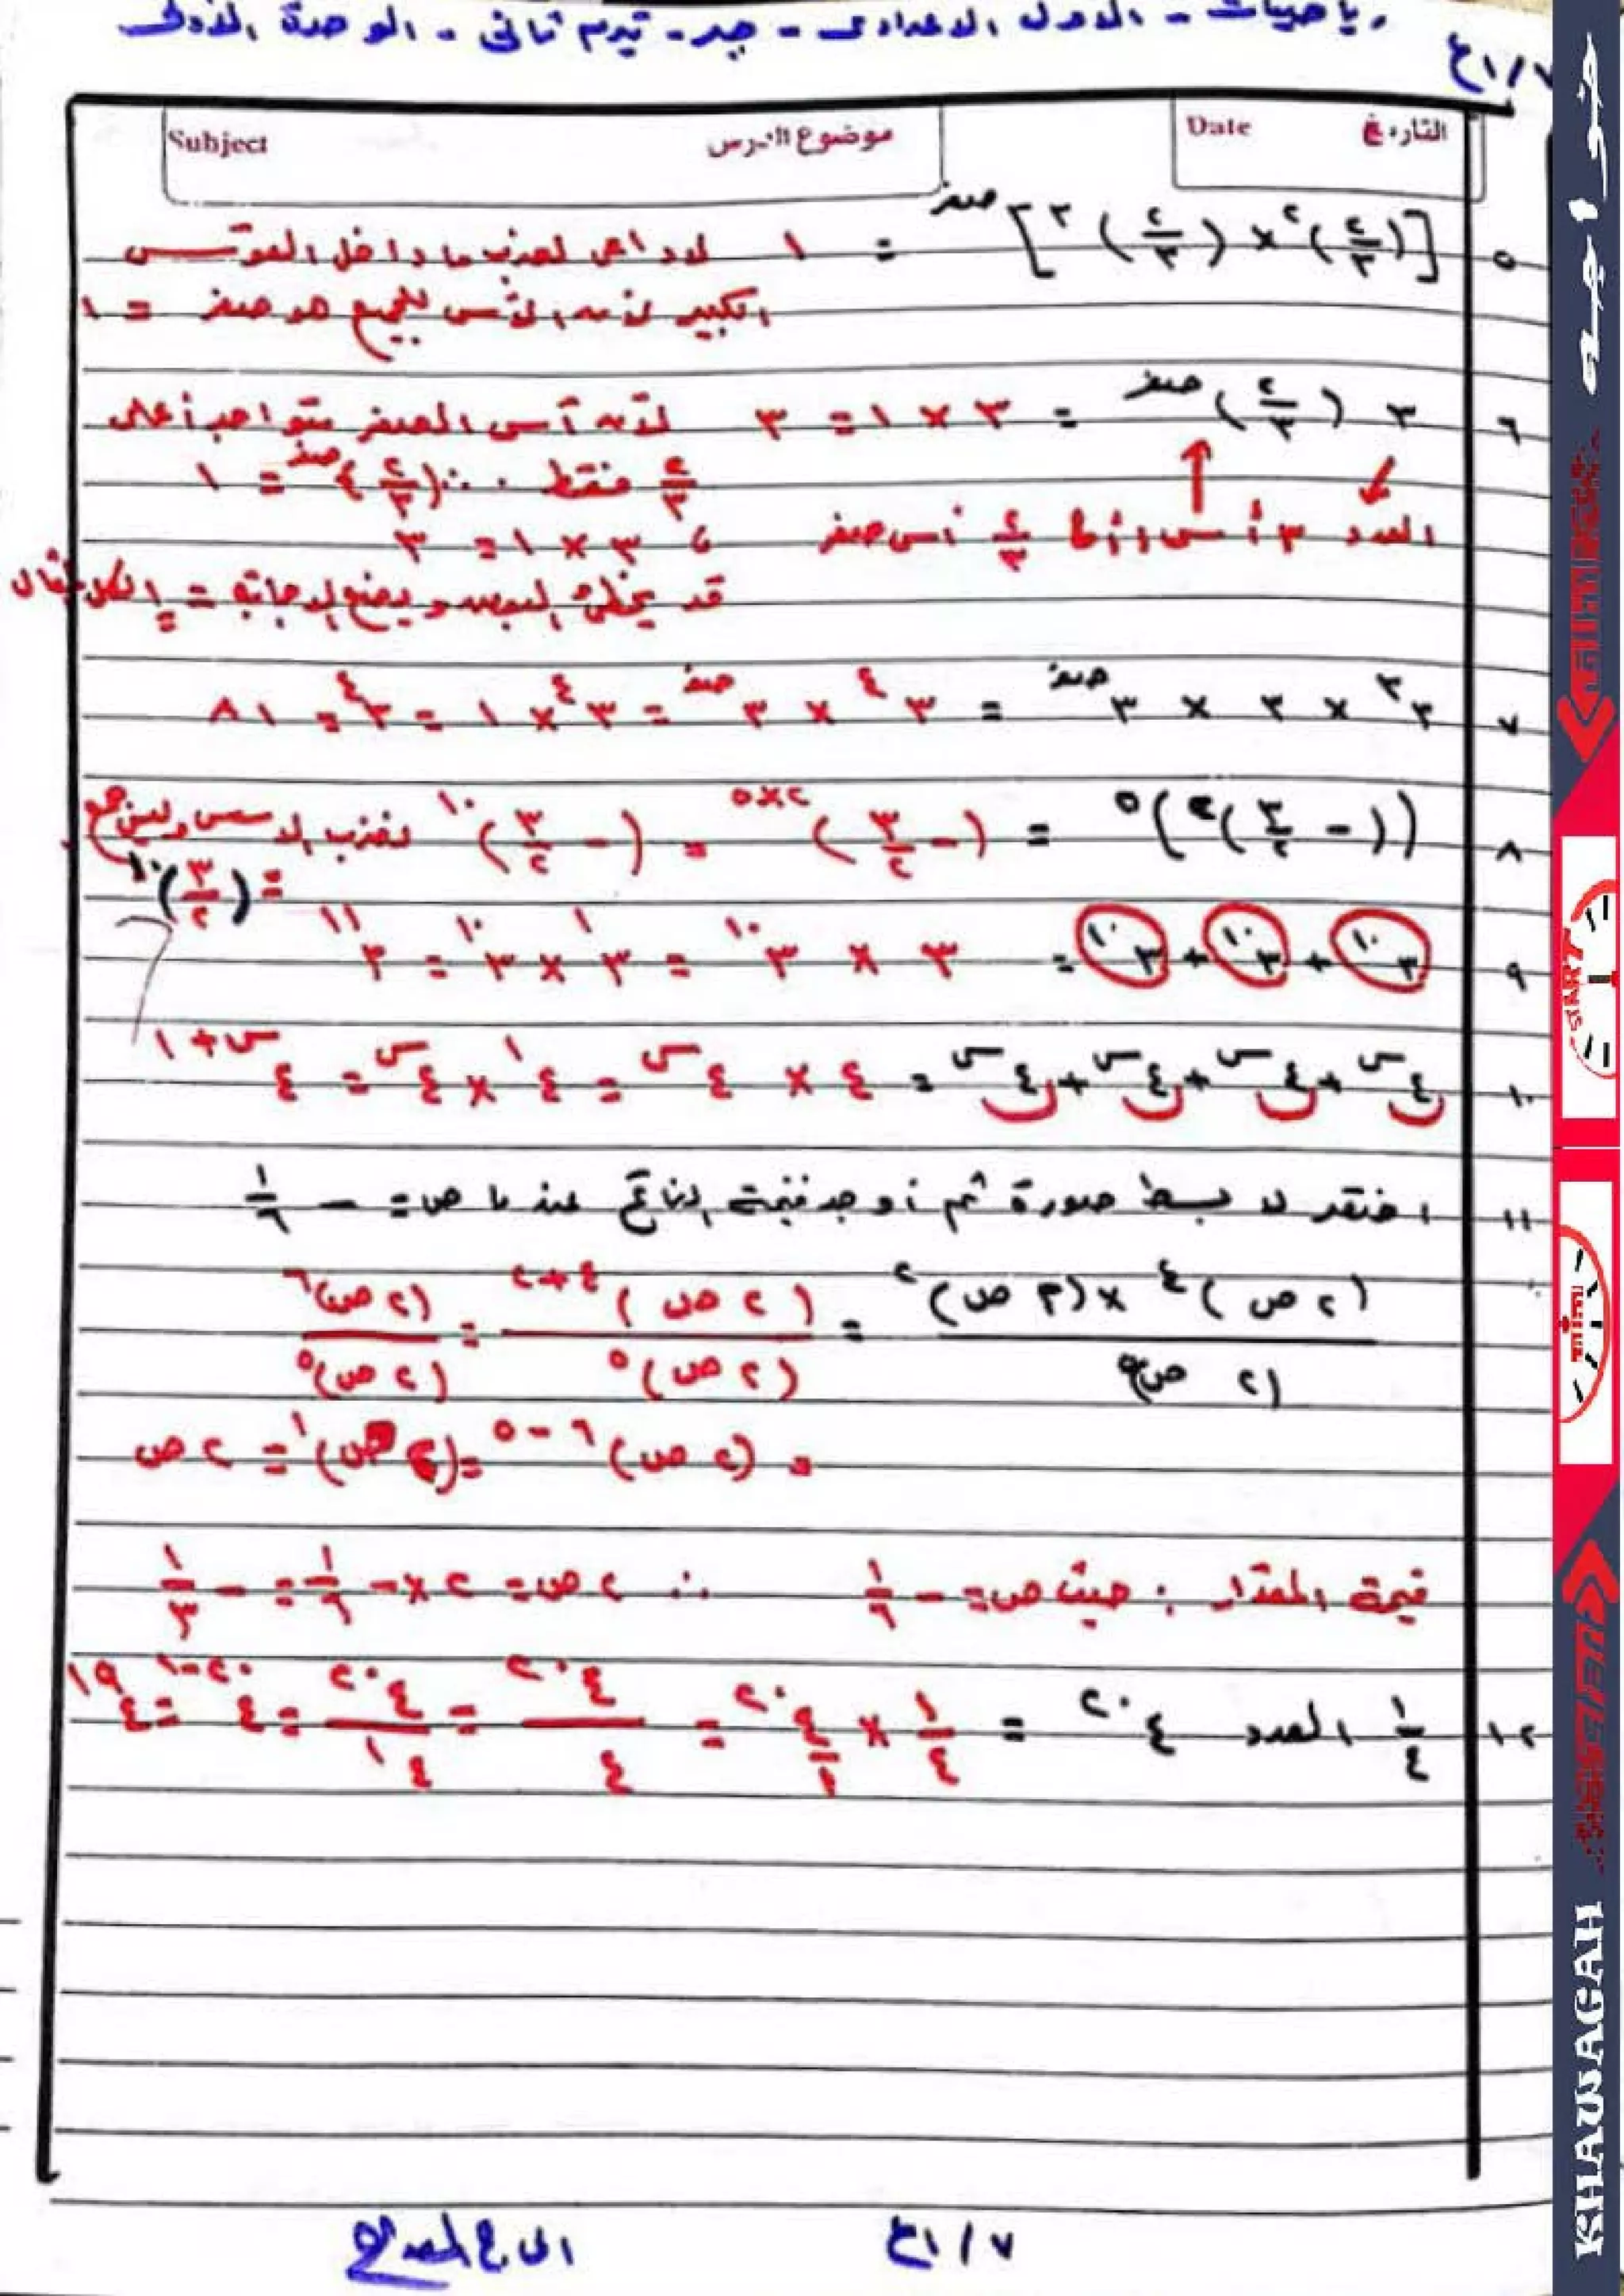 رياضيات - الاول الاعدادى - جبر - تيرم ثانى - الوحدة الأولى
٧/١ع
Subject موضوع الدرس Date التاريخ
٥ [(٢/٣)^٢ × (٢/٣)^٣]^صفر = ١ لا داعى لضرب ما داخل القوس
الكبير لأن الأس للجميع هو صفر = ١
٦ ٣ (٢/٣)^صفر = ٣ × ١ = ٣ لأن أس الصفر متواجد أعلى
٢/٣ فقط ∴ (٢/٣)^صفر = ١
العدد ٣ أس ١ أما ٢/٣ أس صفر ، ٣ × ١ = ٣
قد يخطئ البعض ويضع الإجابة =
٧ ٣^٣ × ٣ × ٣^صفر = ٣^٤ × ٣^صفر = ٣^٤ × ١ = ٣^٤ = ٨١
٨ ((- ٣/٢)^٢)^٥ = (- ٣/٢)^٥×٢ = (- ٣/٢)^١٠ نضرب الاسس وليس جمع
= (٣/٢)^١٠
٩ ٣^١٠ + ٣^١٠ + ٣^١٠ = ٣ × ٣^١٠ = ٣^١ × ٣^١٠ = ٣^١١
١٠ ٤^س + ٤^س + ٤^س + ٤^س = ٤ × ٤^س = ٤^١ × ٤^س = ٤^س+١
١١ اختصر لابسط صورة ثم أوجد قيمة الناتج عندما ص = - ١/٦
(٢ ص)^٤ × (٢ ص)^٢ / (٢ ص)^٥ = (٢ ص)^٤+٢ / (٢ ص)^٥ = (٢ ص)^٦ / (٢ ص)^٥
= (٢ ص)^٦-٥ = (٢ ص)^١ = ٢ ص
قيمة المقدار : حيث ص = - ١/٦ ∴ ٢ ص = ٢ × - ١/٦ = - ١/٣
١٢ ١/٤ العدد ٤^٢٠ = ١/٤ × ٤^٢٠/١ = ٤^٢٠/٤ = ٤^٢٠/٤^١ = ٤^٢٠-١ = ٤^١٩
٧/١ع
خواجه
START
TIME
KHAWAGAH